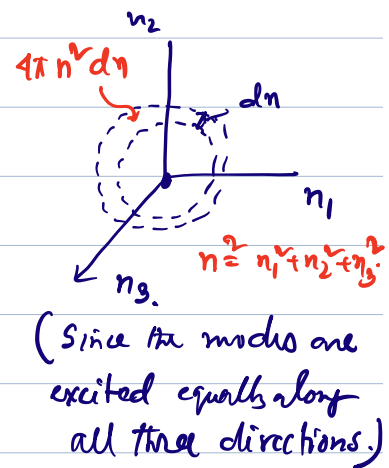 n₂
4π n² dn
dn
n₁
n² = n₁² + n₂² + n₃².
n₃.
(Since the modes are
excited equally along
all three directions.)